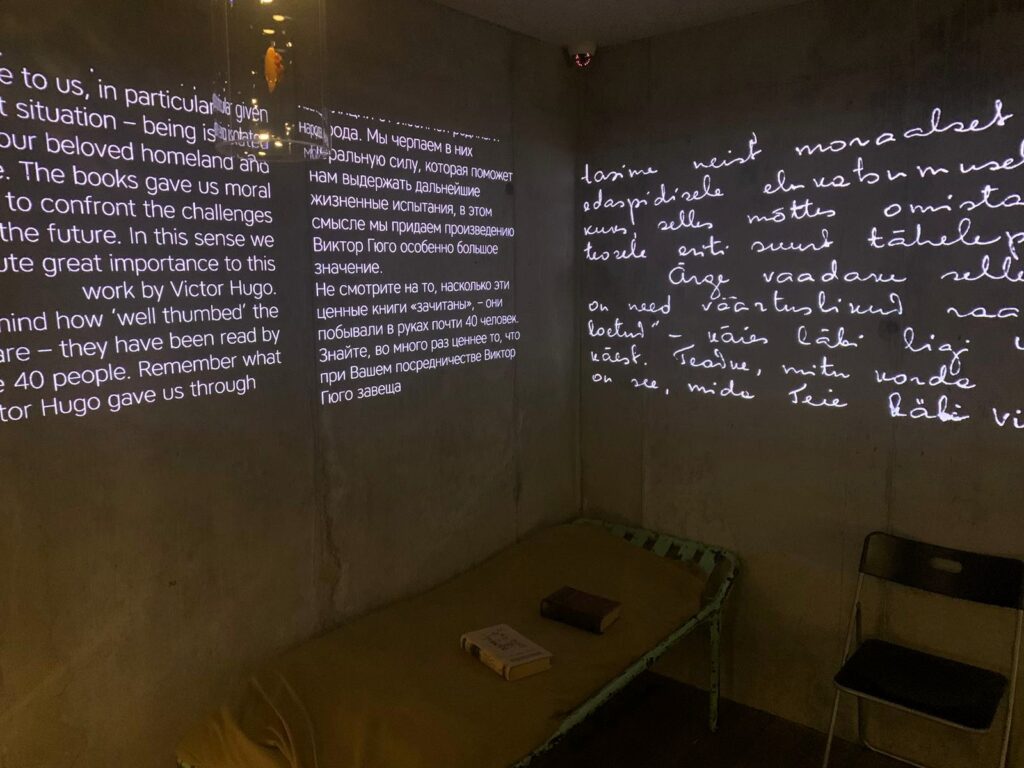 e to us, in particular a given
t situation – being isolated
our beloved homeland and
e. The books gave us moral
to confront the challenges
the future. In this sense we
ute great importance to this
work by Victor Hugo.
mind how ‘well thumbed’ the
are – they have been read by
e 40 people. Remember what
tor Hugo gave us through
народа. Мы черпаем в них
моральную силу, которая поможет
нам выдержать дальнейшие
жизненные испытания, в этом
смысле мы придаем произведению
Виктор Гюго особенно большое
значение.
Не смотрите на то, насколько эти
ценные книги «зачитаны», – они
побывали в руках почти 40 человек.
Знайте, во много раз ценнее то, что
при Вашем посредничестве Виктор
Гюго завеща
tasime neist moraalset
edaspidisele elukatsumusel
kus, selles mõttes omista
teosele eriti suurt tähelep
Ärge vaadake selle
on need väärtuslikud raa
loetud“ – käies läbi ligi
käest. Teadke, mitu korda
on see, mida Teie läbi Vi